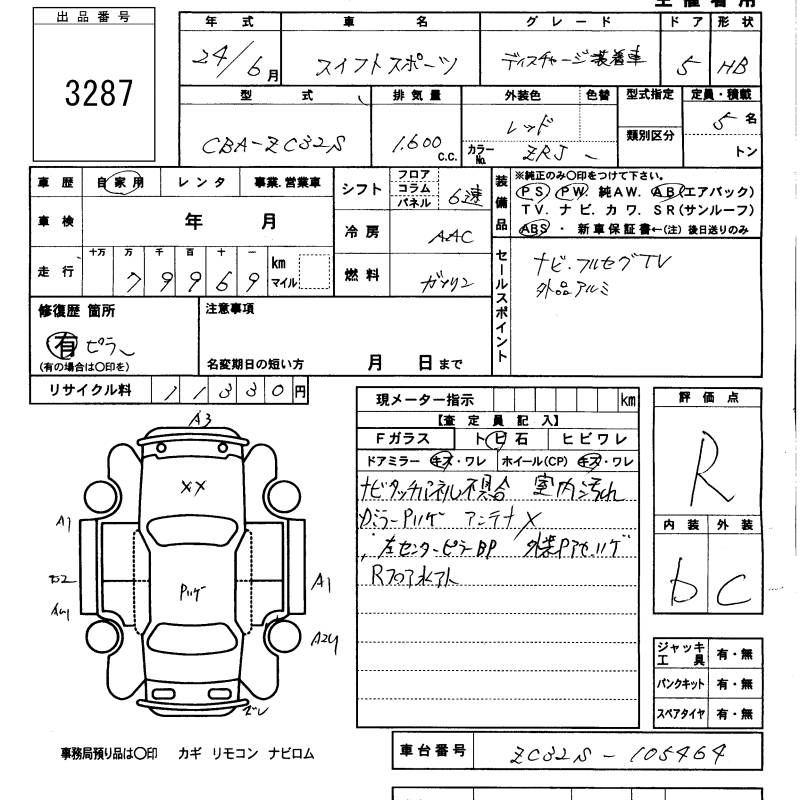 出品番号
3287
年式 車名 グレード ドア 形状
24/6月 スイフトスポーツ ディスチャージ装着車 5 HB
型式 排気量 外装色 色替 型式指定 定員・積載
CBA-ZC32S 1.600 c.c. レッド 5名
カラーNo. ZRJ 類別区分 トン
車歴 自家用 レンタ 事業.営業車
シフト フロア コラム パネル 6速
装備品 ※純正のみ〇印をつけて下さい。
PS PW 純AW. AB(エアバック)
TV. ナビ. カワ. SR(サンルーフ)
ABS ・ 新車保証書←(注) 後日送りのみ
車検 年 月
冷房 AAC
走行 十万 万 千 百 十 一 km マイル
79969
燃料 ガソリン
セールスポイント
ナビ・フルセグTV
外品アルミ
修復歴 箇所 注意事項
有 ピラー
(有の場合は〇印を)
名変期日の短い方 月 日まで
リサイクル料 11330円
現メーター指示 km
【査定員記入】
Fガラス トビ石 ヒビワレ
ドアミラー キズ・ワレ ホイール(CP) キズ・ワレ
ナビタッチパネル不具合 室内汚れ
アンテナ×
左センターピラーBP
Rフロア水アト
評価点
R
内装 外装
b C
A3
××
A1
A1
A24
ジャッキ工具 有・無
パンクキット 有・無
スペアタイヤ 有・無
事務局預り品は〇印 カギ リモコン ナビロム
車台番号 ZC32S-105464